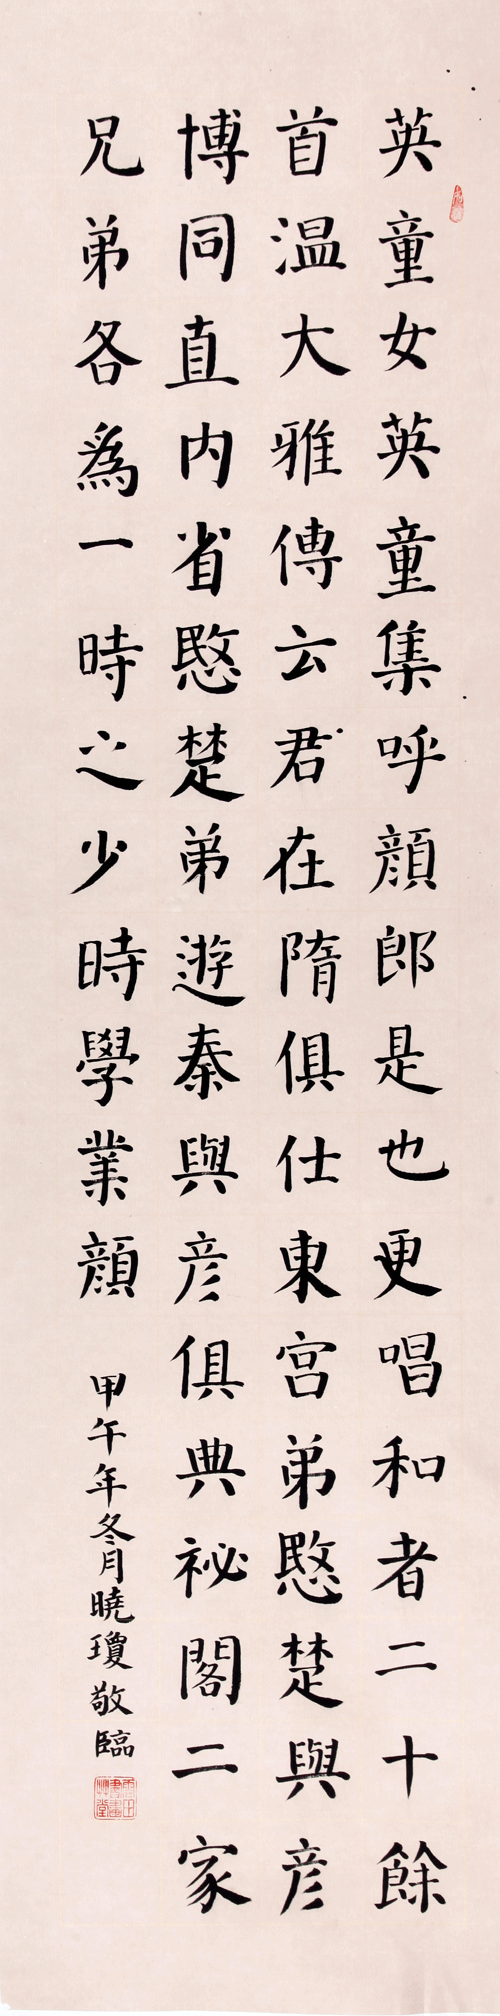 英童女英童集呼顔郎是也更唱和者二十餘
首温大雅傳云君在隋俱仕東宫弟愍楚與彦
博同直内省愍楚弟遊秦與彦俱典祕閣二家
兄弟各為一時之少時學業顔
甲午年冬月曉瓊敬臨